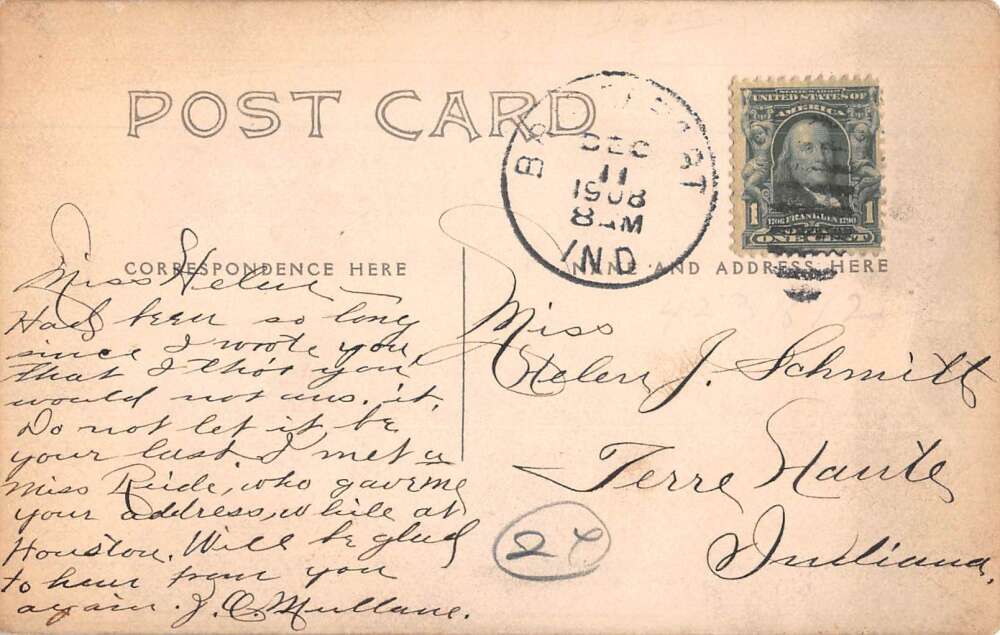 POST CARD
DEC
11
1908
8 AM
IND
SERIES 1902
UNITED STATES OF
AMERICA
1 1706 FRANKLIN 1790 1
ONE CENT
CORRESPONDENCE HERE
NAME AND ADDRESS HERE
Miss Helen –
Had been so long
since I wrote you,
that I tho's you
would not ans. it.
Do not let it be
your last. I met a
Miss Ride, who gave me
your address, while at
Houston. Will be glad
to hear from you
again. J. O. Mullane.
Miss
Helen J. Schmitt
Terre Haute
Indiana,
24